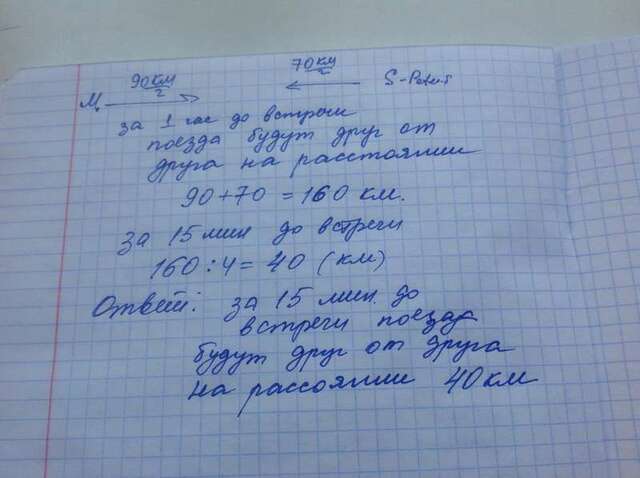 90 км/г 70 км/г
М. S-Peters
за 1 час до встречи
поезда будут друг от
друга на расстоянии
90+70 = 160 км.
за 15 мин до встречи
160 : 4 = 40 (км)
Ответ: за 15 мин. до
встречи поезда
будут друг от друга
на рассоянии 40 км